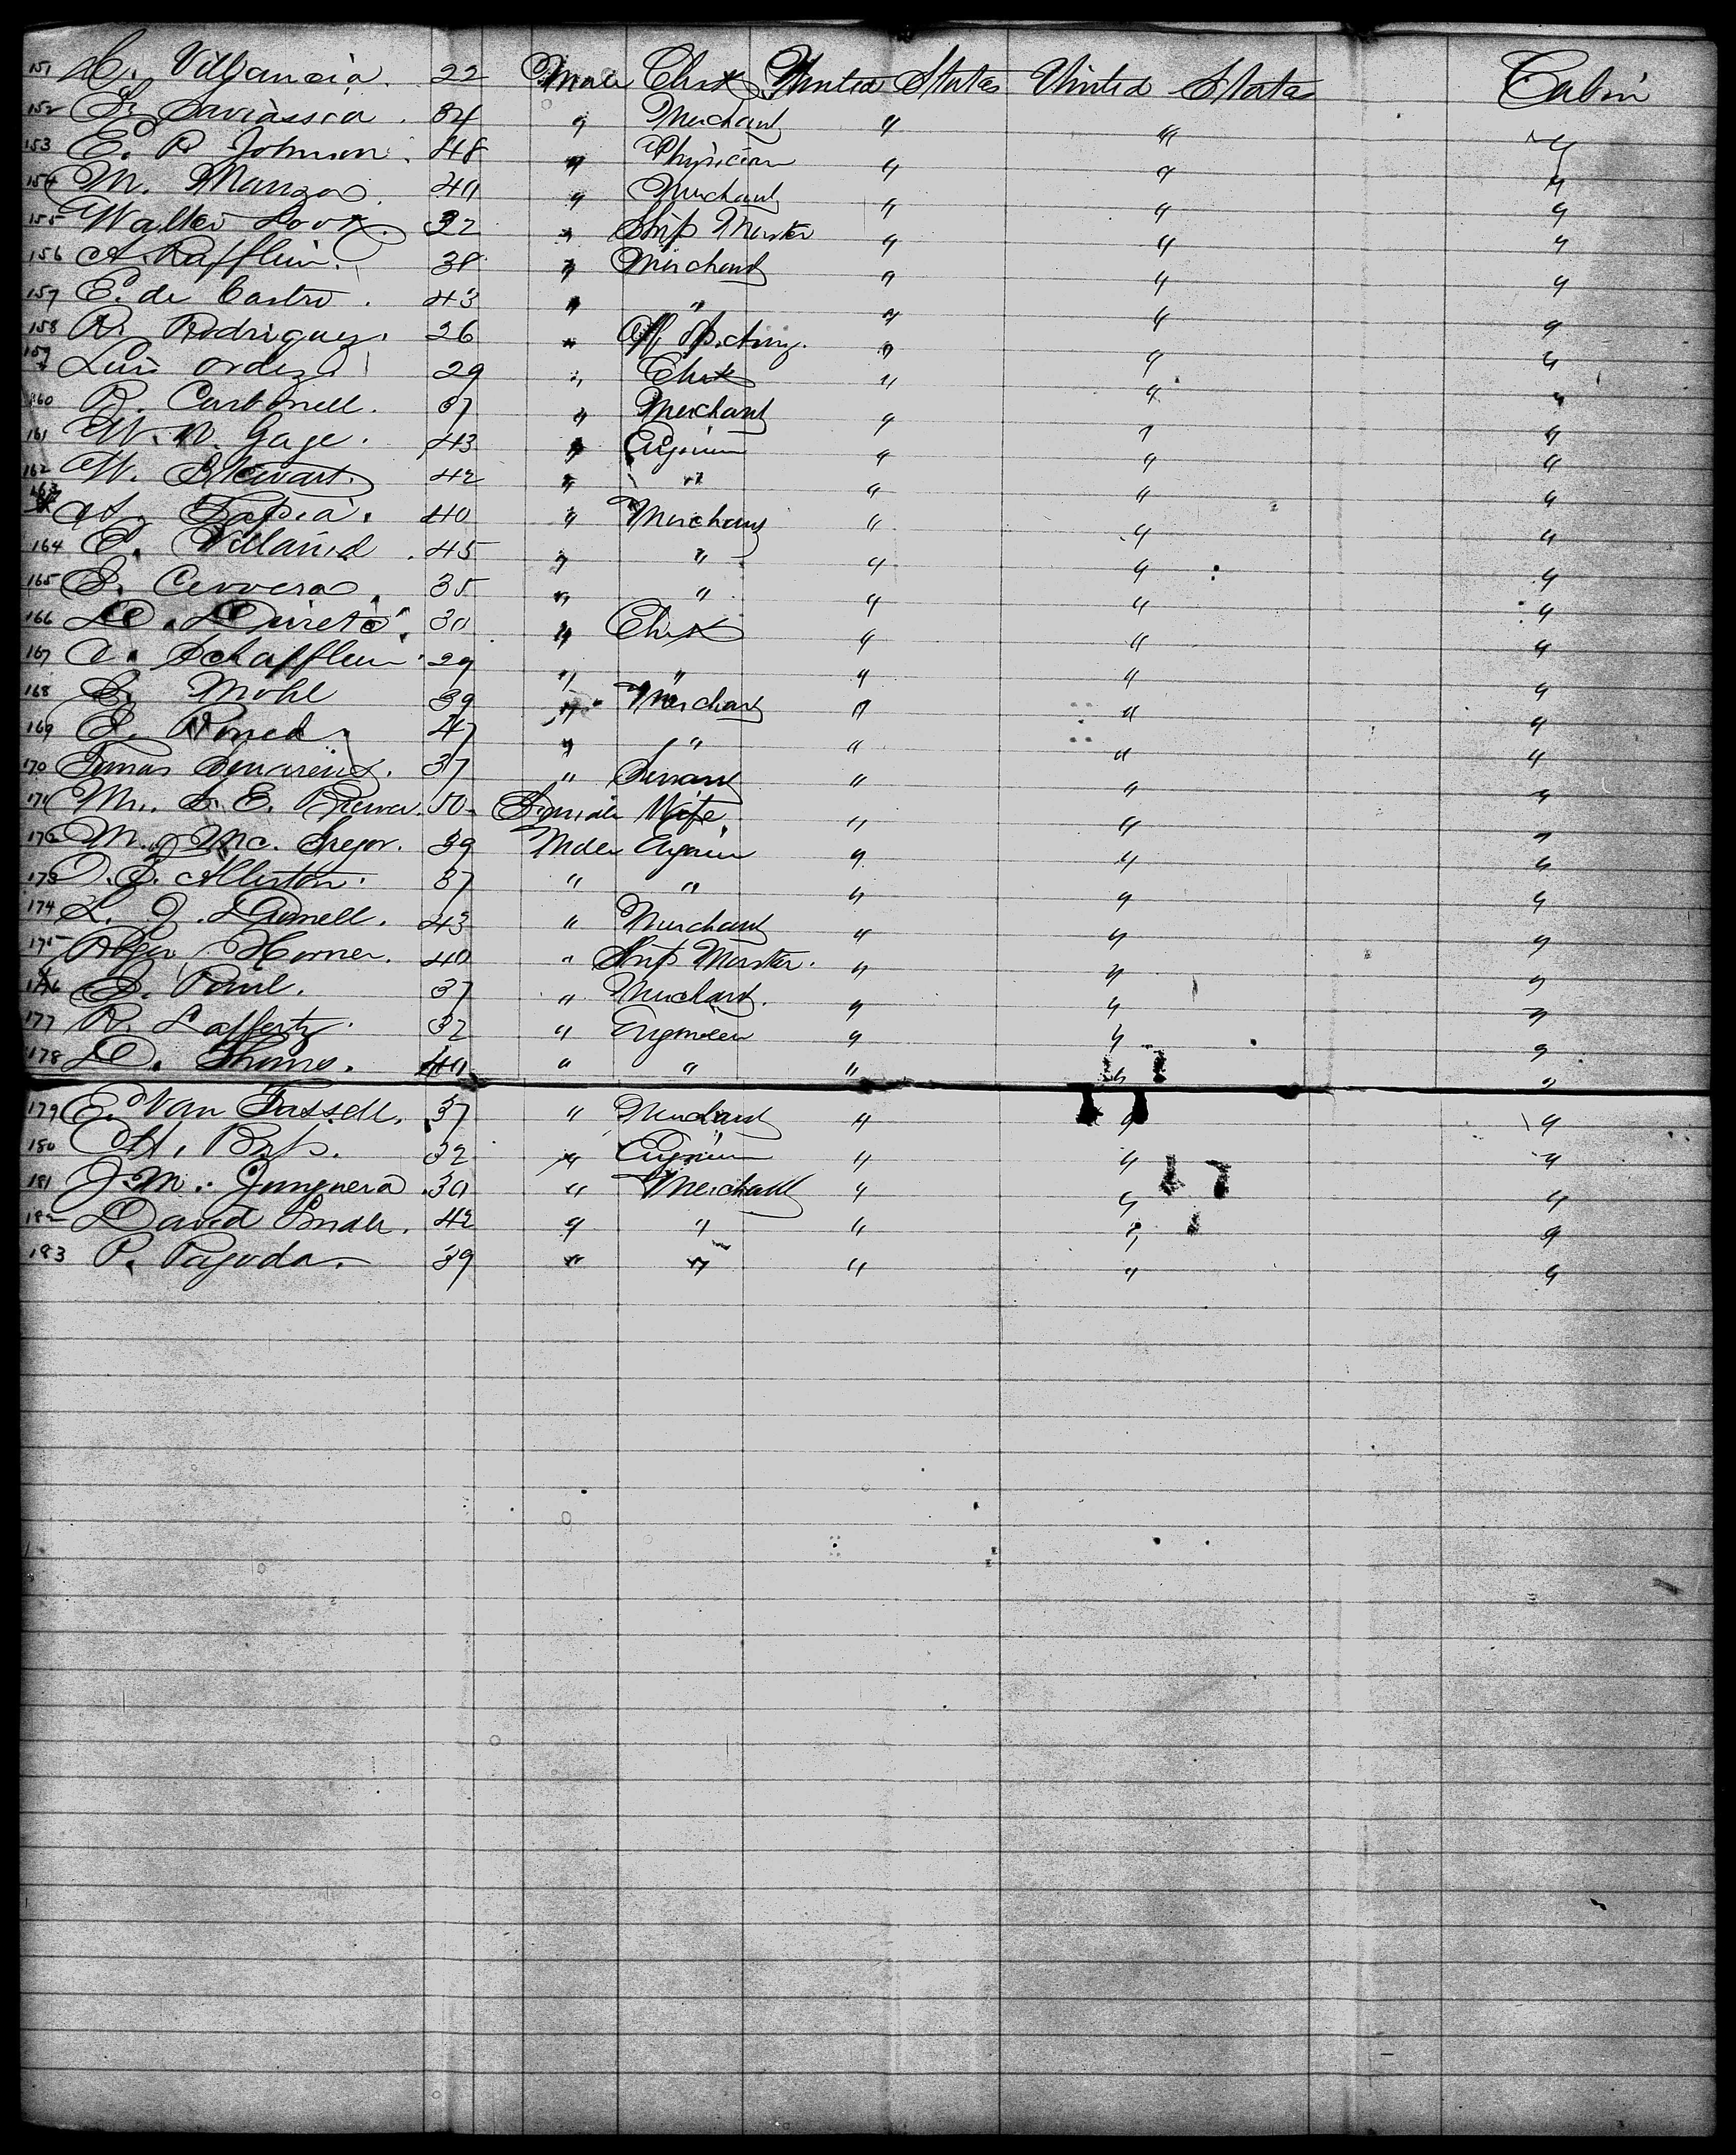 151 Villancia. 22 Male Clerk United States United States Cabin
152 34 " Merchant " " "
153 E. R. Johnson. 48 " Physician " " "
154 M. Manzos. 40 " Merchant " " "
155 Walter 32 " Ship Master " " "
156 A. Rafflein. 38 " Merchant " " "
157 E. de Castro. 43 " " " " "
158 R. Rodriguez. 26 " " " "
159 Luis 29 " Clerk " " "
160 R. Carbonell. 37 " Merchant " " "
161 W. W. Gage. 43 " Engineer " " "
162 W. Stewart. 42 " " " " "
163 A. Tapia. 40 " Merchant " " "
164 45 " " " " "
165 Cervera. 35 " " " " "
166 D. 30 " Clerk " " "
167 Schafflein. 29 " " " " "
168 Mohl 39 " Merchant " " "
169 47 " " " " "
170 Tomas 37 " Servant " " "
171 E. 50 Female Wife " " "
172 M. Mc. Gregor. 39 Male Engineer " " "
173 Allerton. 37 " " " " "
174 L. J. Darnell. 43 " Merchant " " "
175 Horner. 40 " Ship Master. " " "
176 Paul. 37 " Merchant. " " "
177 R. Lafferty. 32 " Engineer " " "
178 D. 40 " " " " "
179 E. Van Tassell. 37 " Merchant " " "
180 32 " Engineer " " "
181 J. M. Junquera. 30 " Merchant " " "
182 David 42 " " " " "
183 P. Pagoda. 39 " " " " "